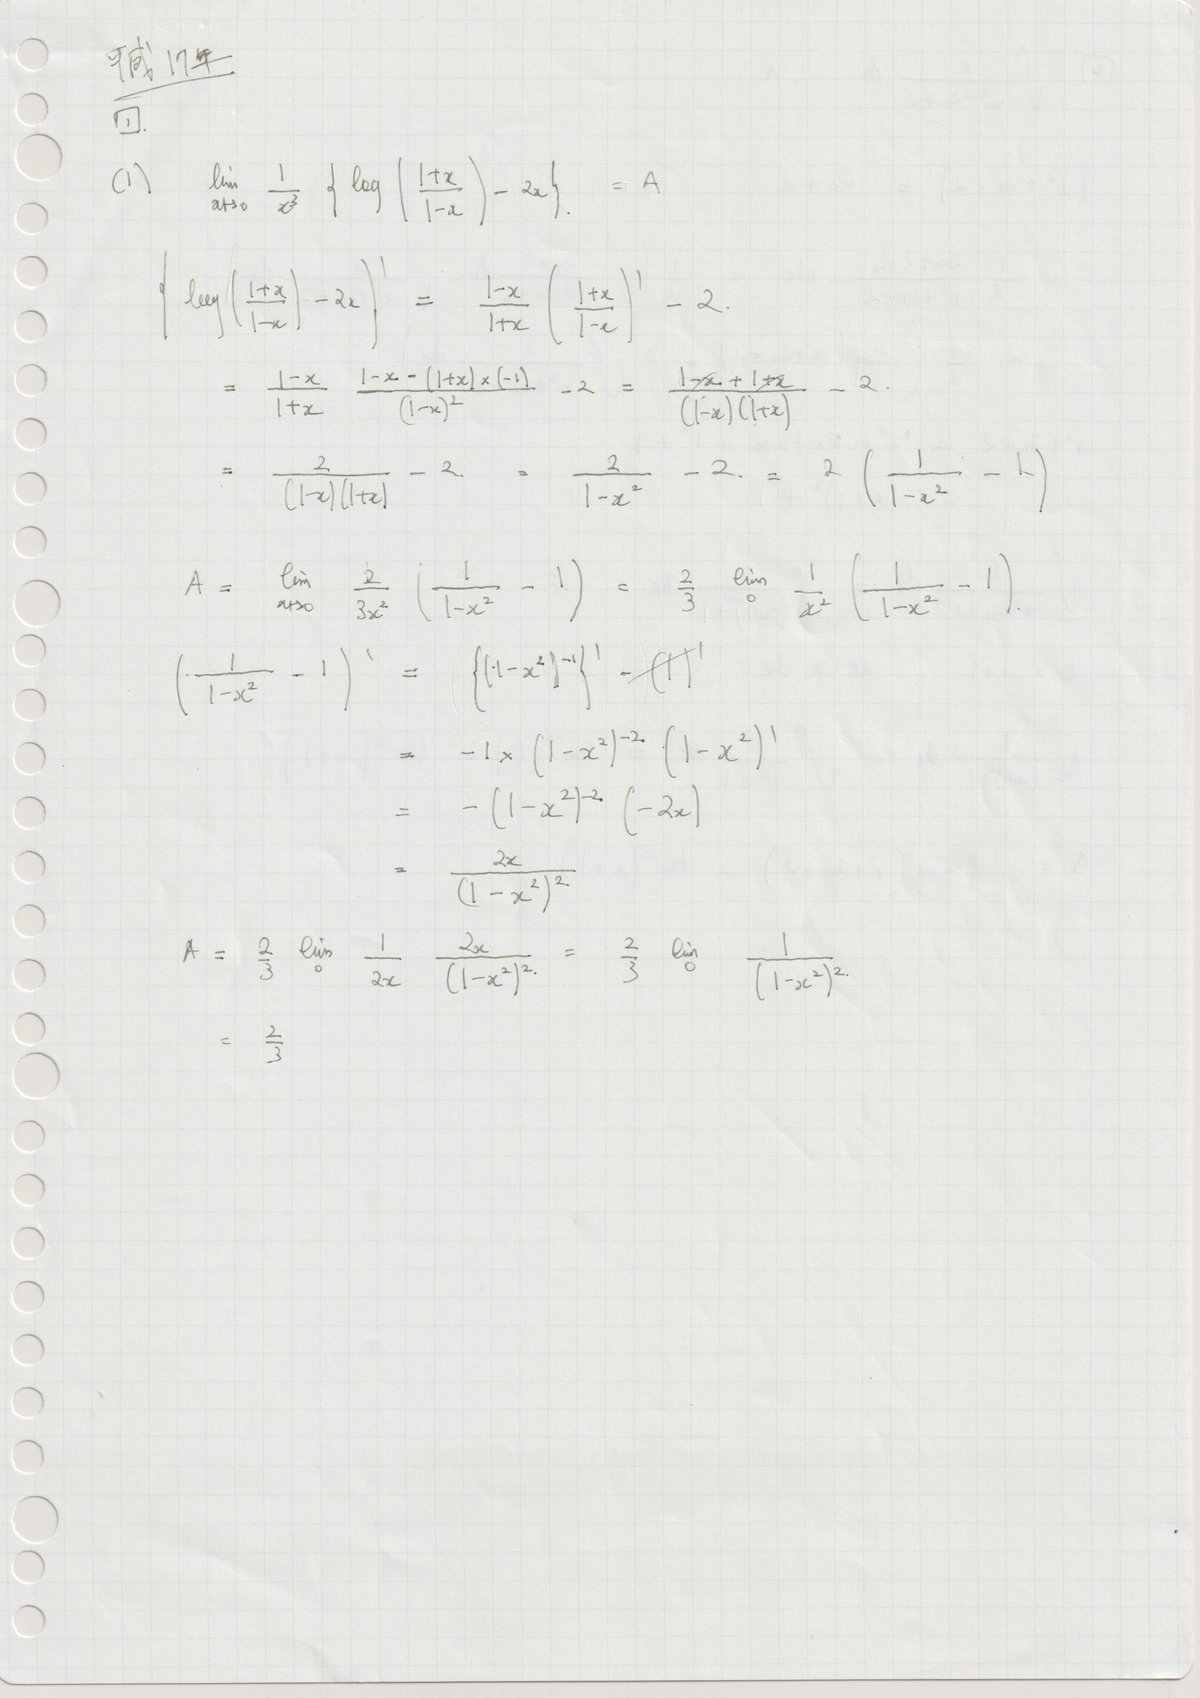 平成17年
1.
(1) lim x→0 1/x³ { log ( (1+x)/(1-x) ) - 2x }. = A
{ log ( (1+x)/(1-x) ) - 2x )' = (1-x)/(1+x) ( (1+x)/(1-x) )' - 2.
= (1-x)/(1+x) (1-x-(1+x)×(-1))/(1-x)² - 2 = (1-x+1+x)/((1-x)(1+x)) - 2.
= 2/((1-x)(1+x)) - 2 = 2/(1-x²) - 2. = 2 ( 1/(1-x²) - 1 )
A = lim x→0 2/3x² ( 1/(1-x²) - 1 ) = 2/3 lim 0 1/x² ( 1/(1-x²) - 1 ).
( 1/(1-x²) - 1 )' = {(1-x²)⁻¹}' - (1)'
= -1 × (1-x²)⁻² · (1-x²)'
= - (1-x²)⁻² (-2x)
= 2x/(1-x²)²
A = 2/3 lim 0 1/2x 2x/(1-x²)². = 2/3 lim 0 1/(1-x²)².
= 2/3